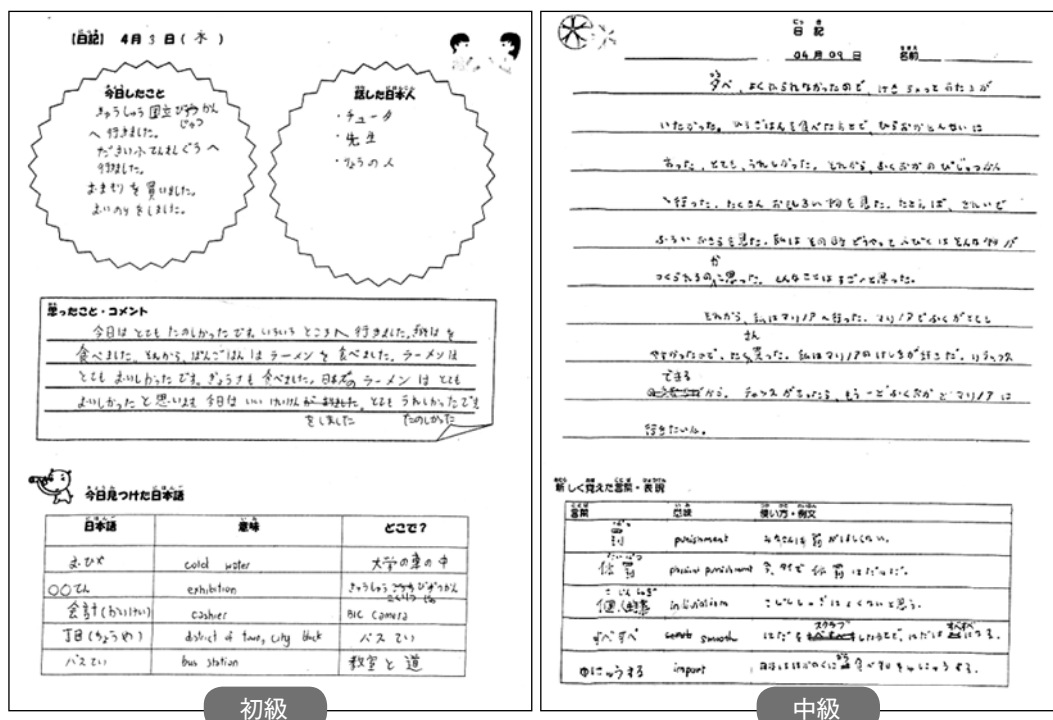 【日記】 4月 3 日( 水 )
今日したこと
きゅうしゅう国立びじゅつかん
へ 行きました。
だざいふてんまんぐうへ
行ました。
おまもりを買いました。
おいのりをしました。
話した日本人
・チュータ
・先生
・りょうの人
思ったこと・コメント
今日は とても たのしかったです。いろいろ ところへ 行きました。
食べました。それから、ばんごはんは ラーメンを 食べました。ラーメンは
とても おいしかったです。ぎょうざも 食べました。日本の ラーメン は とても
おいしかったと思います 今日は いい けいけん がありました。とても うれしかったです
をしました たのしかった
今日見つけた日本語
日本語 意味 どこで?
おひや cold water 大学の車の中
○○てん exhibition きゅうしゅうこくりつびじゅつかん
会計(かいけい) cashier BIC Camera
丁目(ちょうめ) district of town, city block バスてい
バスてい bus station 教室と道
初級
日記
04 月 09 日 名前
夕べ、よくねられなかったので、
いたかった。ひるごはんを食べたあとで、
あった。とても、うれしかった。それから、ふくおかのびじゅつかん
へ行った。たくさん おもしろい物を見た。たとえば、きれいで
ふるい おさらを見た。私は その時 どうやって
つくられるのかと思った。 はすごいと思った。
それから、私はマリノアへ行った。マリノアでふくがとても
やすかったので、たくさん買った。私はマリノアの けしきが好きだ。リラックス
できるから。チャンスがあったら、もう一ど ふくおか と マリノア は
行きたいな。
新しく覚えた言葉・表現
言葉 意味 使い方・例文
罰 punishment みなさんは 罰 がほしくない。
体罰 physical punishment 体罰 はだめだ。
個人主義 こじんしゅぎはよくないと思う。
すべすべ smooth はだをスクラブしたあとで、はだはすべすべになる。
ゆにゅうする import 食べ物をゆにゅうする。
中級